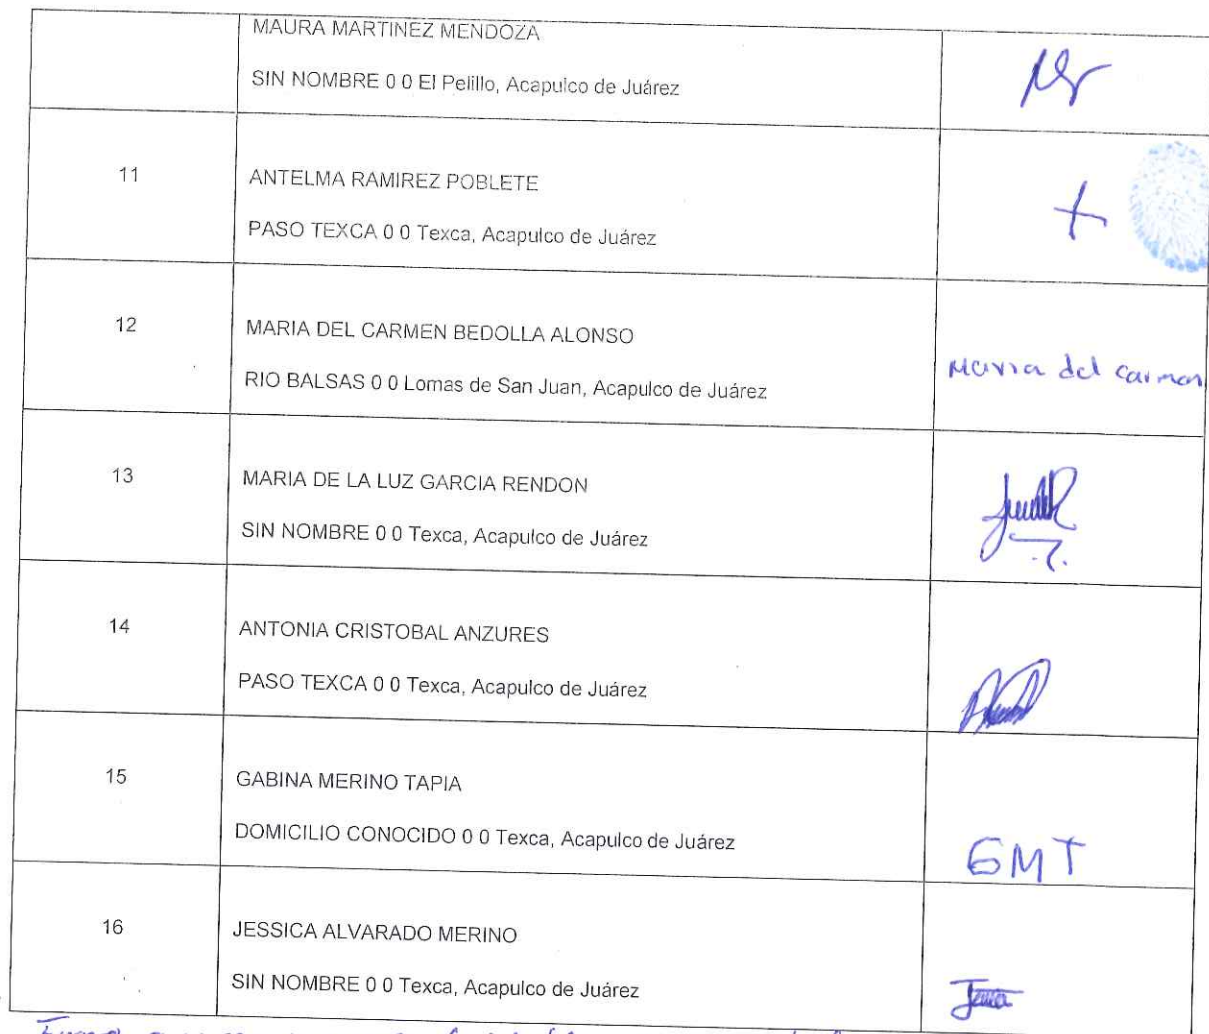 MAURA MARTINEZ MENDOZA
SIN NOMBRE 0 0 El Pelillo, Acapulco de Juárez
11
ANTELMA RAMIREZ POBLETE
PASO TEXCA 0 0 Texca, Acapulco de Juárez
12
MARIA DEL CARMEN BEDOLLA ALONSO
RIO BALSAS 0 0 Lomas de San Juan, Acapulco de Juárez
Maria del Carmen
13
MARIA DE LA LUZ GARCIA RENDON
SIN NOMBRE 0 0 Texca, Acapulco de Juárez
14
ANTONIA CRISTOBAL ANZURES
PASO TEXCA 0 0 Texca, Acapulco de Juárez
15
GABINA MERINO TAPIA
DOMICILIO CONOCIDO 0 0 Texca, Acapulco de Juárez
GMT
16
JESSICA ALVARADO MERINO
SIN NOMBRE 0 0 Texca, Acapulco de Juárez